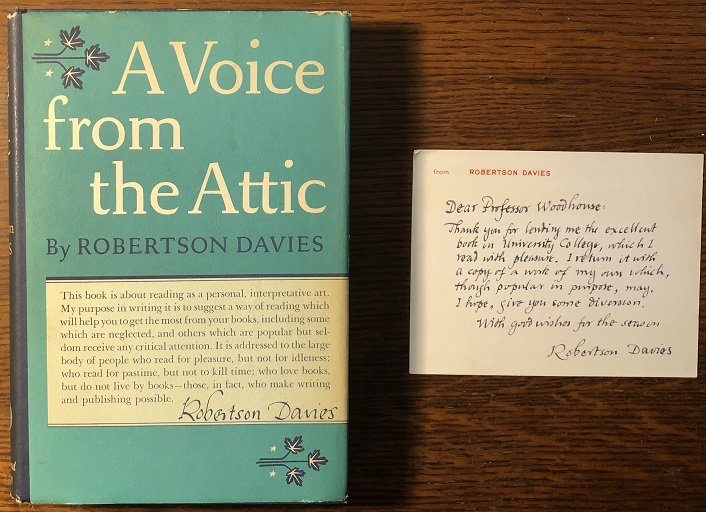 A Voice
from
the Attic
By ROBERTSON DAVIES
This book is about reading as a personal, interpretative art.
My purpose in writing it is to suggest a way of reading which
will help you to get the most from your books, including some
which are neglected, and others which are popular but sel-
dom receive any critical attention. It is addressed to the large
body of people who read for pleasure, but not for idleness;
who read for pastime, but not to kill time; who love books,
but do not live by books—those, in fact, who make writing
and publishing possible.
Robertson Davies
from ROBERTSON DAVIES
Dear Professor Woodhouse:
Thank you for lending me the excellent
book on University College, which I
read with pleasure. I return it with
a copy of a work of my own which,
though popular in purpose, may,
I hope, give you some diversion.
With good wishes for the season
Robertson Davies